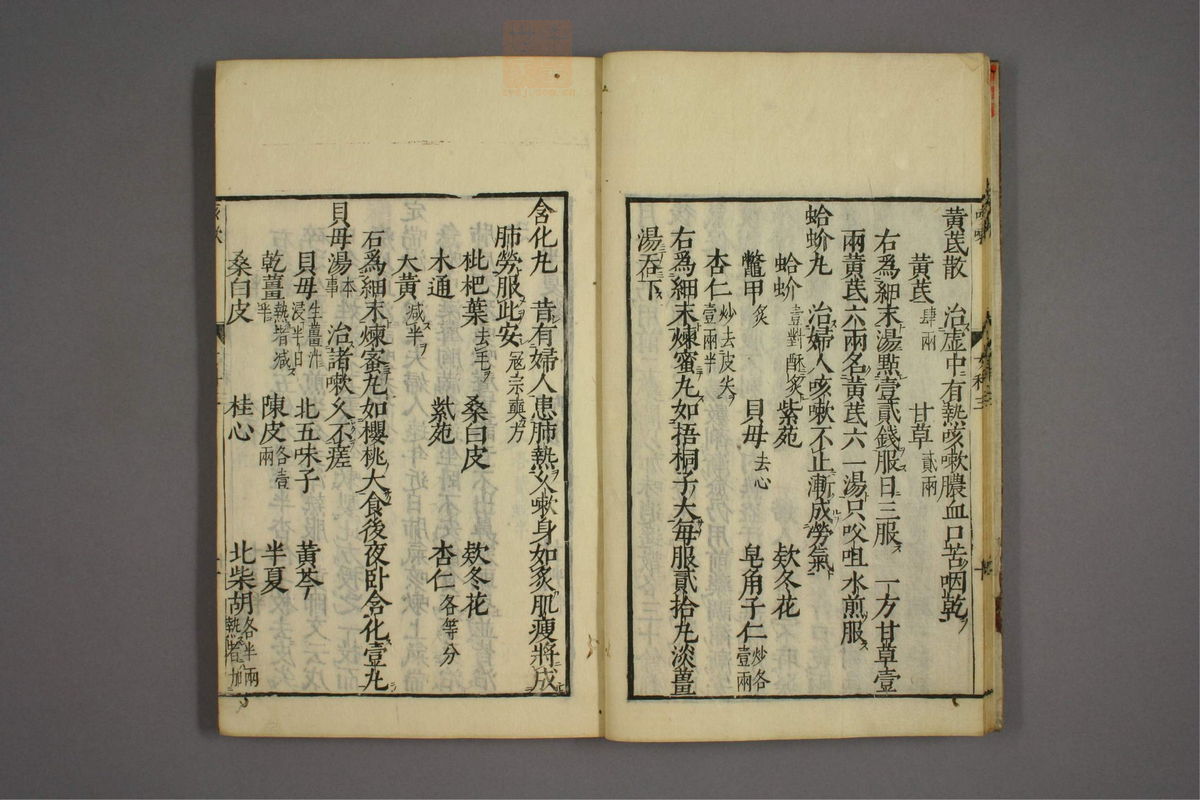 黄芪散　治虚中有熱咳嗽膿血口苦咽乾
黄芪肆兩　甘草貳兩
右爲細末湯點壹貳錢服日三服　一方甘草壹
兩黄芪六兩名黄芪六一湯只㕮咀水煎服
蛤蚧丸　治婦人咳嗽不止漸成勞氣
蛤蚧壹對酥炙　紫苑　欵冬花
鼈甲炙　貝母去心　皂角子仁炒各壹兩
杏仁炒去皮尖壹兩半
右爲細末煉蜜丸如梧桐子大毎服貳拾丸淡薑
湯吞下
含化丸　昔有婦人患肺熱久嗽身如炙肌瘦將成
肺勞服此安寇宗奭方
枇杷葉去毛　桑白皮　欵冬花
木通　紫苑　杏仁各等分
大黄減半
右爲細末煉蜜丸如櫻桃大食後夜卧含化壹丸
貝母湯　治諸嗽久不瘥
貝母生薑汁浸半日　北五味子　黄芩
乾薑熱者減半　陳皮各壹兩　半夏
桑白皮　桂心　北柴胡各半兩熱者加